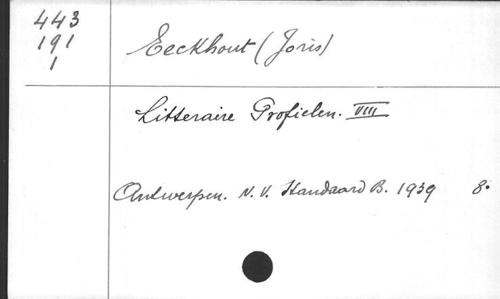 443
191
1
Eeckhout (Joris)
Litteraire Profielen. VIII
Antwerpen. N.V. Standaard B. 1939 8°